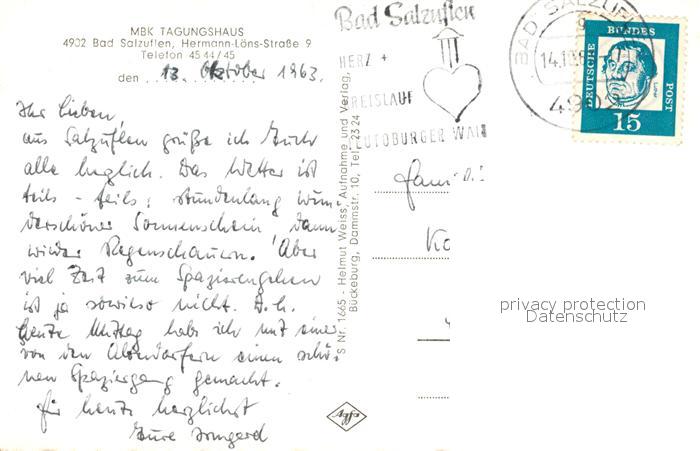 MBK TAGUNGSHAUS
4902 Bad Salzuflen, Hermann-Löns-Straße 9
Telefon 45 44/45
den 13. Oktober 1963.
Ihr Lieben,
aus Salzuflen grüße ich Euch
alle herzlich. Das Wetter ist
teils - teils: stundenlang wun-
derschöner Sonnenschein, dann
wieder Regenschauern. Aber
viel Zeit zum Spazierengehen
ist ja sowieso nicht. D.h.
heute Mittag habe ich mit einer
von den einen schö-
nen Spaziergang gemacht.
Für heute herzlichst
Eure Irmgard
S Nr. 1665 - Helmut Weiss, Aufnahme und Verlag,
Bückeburg, Dammstr. 10, Tel. 23 24
Agfa
Bad Salzuflen
HERZ +
KREISLAUF
TEUTOBURGER WALD
BAD SALZUFLEN
14.10.6
4902
DEUTSCHE BUNDESPOST
Luther
15
Fami
Ko
privacy protection
Datenschutz